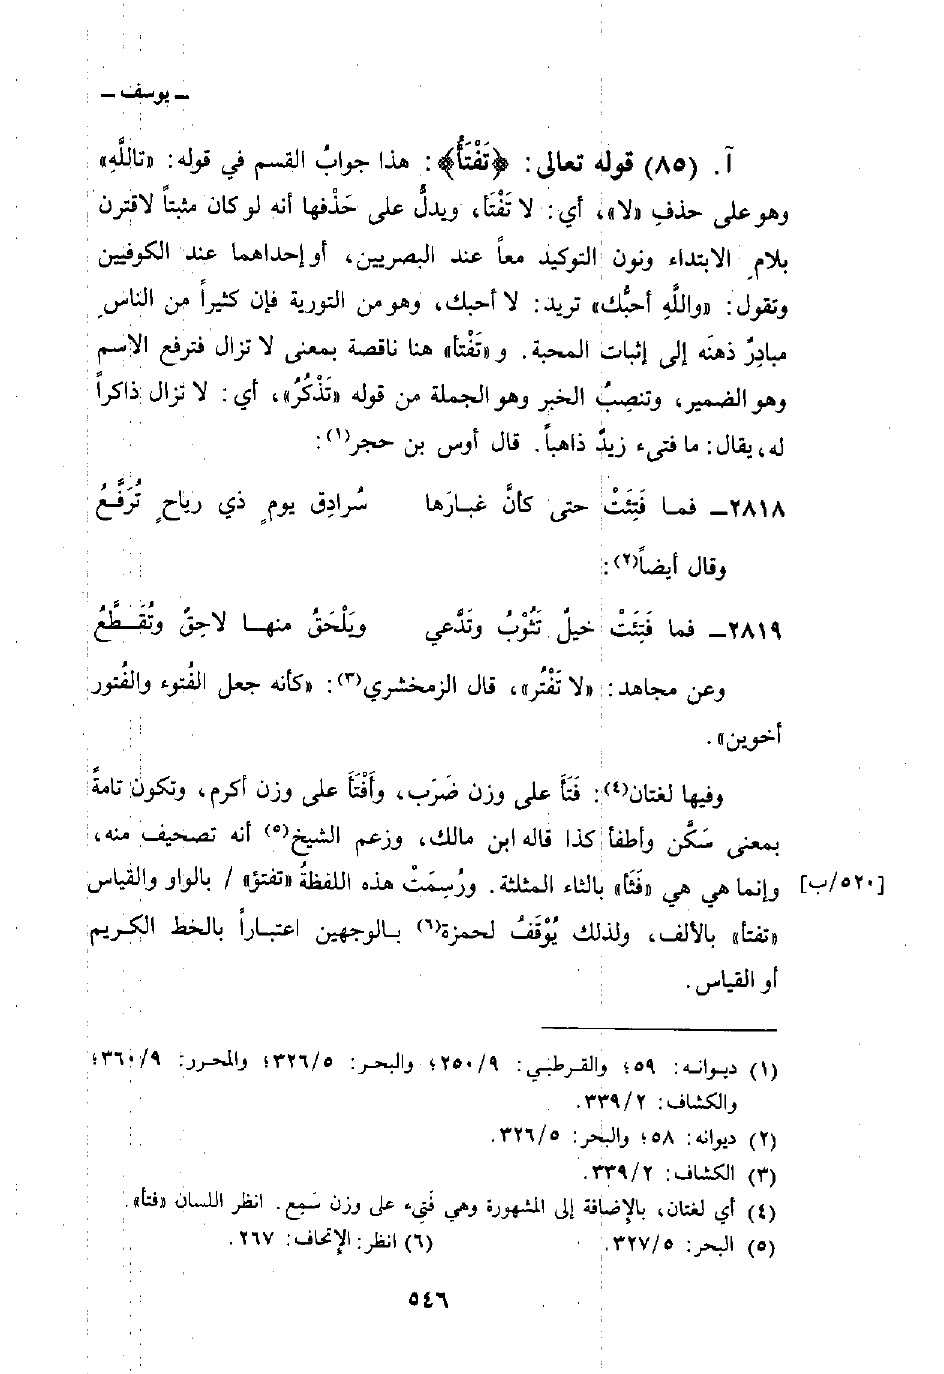 ـ يوسف ـ
آ. (٨٥) قوله تعالى: ﴿تَفْتَأُ﴾: هذا جوابُ القسم في قوله: «تاللَّهِ»
وهو على حذفِ «لا»، أي: لا تَفْتَأ، ويدلُّ على حَذْفها أنه لو كان مثبتاً لاقترن
بلامِ الابتداء ونون التوكيد معاً عند البصريين، أو إحداهما عند الكوفيين
وتقول: «واللَّهِ أحبُّك» تريد: لا أحبك، وهو من التورية فإن كثيراً من الناسِ
مبادِرٌ ذهنَه إلى إثبات المحبة. و «تَفْتأ» هنا ناقصة بمعنى لا تزال فترفع الاسم
وهو الضمير، وتنصِبُ الخبر وهو الجملة من قوله «تَذْكُرُ»، أي: لا تزال ذاكراً
له، يقال: ما فتىء زيدٌ ذاهباً. قال أوس بن حجر(١):
٢٨١٨ـ فمـا فَتِئَتْ حتى كأنَّ غبـارَها سُرادِق يومٍ ذي رياحٍ تُرَفَّعُ
وقال أيضاً(٢):
٢٨١٩ـ فما فَتِئَتْ خيلٌ تَثُوْبُ وتَدَّعي ويَلْحَقُ منهـا لاحِقٌ وتُقَـطَّعُ
وعن مجاهد: «لا تَفْتُر»، قال الزمخشري(٣): «كأنه جعل الفُتوء والفُتور
أخوين».
وفيها لغتان(٤): فَتَأَ على وزن ضَرَب، وأَفْتَأَ على وزن أكرم، وتكون تامةً
بمعنى سَكَّن وأطفأ كذا قاله ابن مالك، وزعم الشيخ(٥) أنه تصحيف منه،
وإنما هي هي «فَثَأ» بالثاء المثلثة. ورُسِمَتْ هذه اللفظةُ «تفتؤ» / بالواو والقياس [٥٢٠/ب]
«تفتأ» بالألف، ولذلك يُوْقَفُ لحمزة(٦) بـالوجهين اعتباراً بالخط الكريم
أو القياس.
(١) ديـوانـه: ٥٩؛ والقـرطبـي: ٢٥٠/٩؛ والبحـر: ٣٢٦/٥؛ والمحـرر: ٣٦٠/٩؛
والكشاف: ٣٣٩/٢.
(٢) ديوانه: ٥٨؛ والبحر: ٣٢٦/٥.
(٣) الكشاف: ٣٣٩/٢.
(٤) أي لغتان، بالإضافة إلى المشهورة وهي فَتِىء على وزن سَمِع. انظر اللسان «فتأ».
(٥) البحر: ٣٢٧/٥. (٦) انظر: الإتحاف: ٢٦٧.
٥٤٦